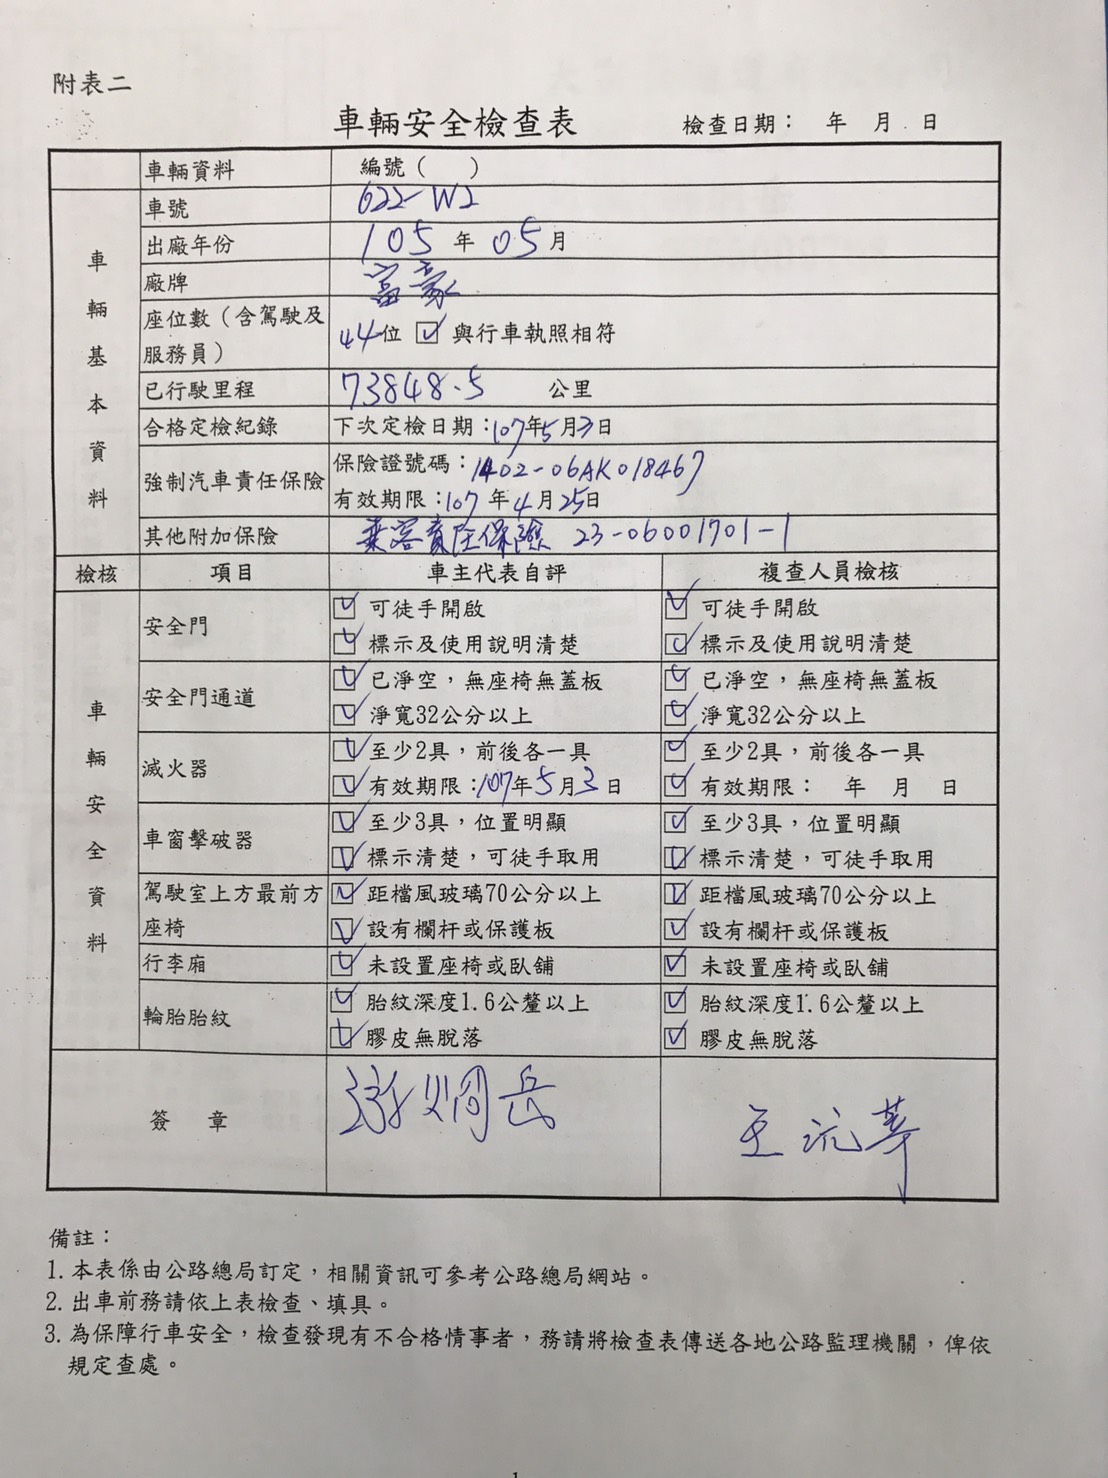 附表二
車輛安全檢查表 檢查日期： 年 月 日
車輛資料 編號（ ）
車輛基本資料
車號 622-W2
出廠年份 105年05月
廠牌 富豪
座位數（含駕駛及服務員） 44位 ☑ 與行車執照相符
已行駛里程 73848.5 公里
合格定檢紀錄 下次定檢日期：107年5月3日
強制汽車責任保險 保險證號碼：1402-06AK018467
有效期限：107年4月25日
其他附加保險 乘客責任保險 23-06001701-1
檢核 項目 車主代表自評 複查人員檢核
車輛安全資料
安全門 ☑ 可徒手開啟 ☑ 可徒手開啟
☑ 標示及使用說明清楚 ☑ 標示及使用說明清楚
安全門通道 ☑ 已淨空，無座椅無蓋板 ☑ 已淨空，無座椅無蓋板
☑ 淨寬32公分以上 ☑ 淨寬32公分以上
滅火器 ☑ 至少2具，前後各一具 ☑ 至少2具，前後各一具
☑ 有效期限：107年5月3日 ☑ 有效期限： 年 月 日
車窗擊破器 ☑ 至少3具，位置明顯 ☑ 至少3具，位置明顯
☑ 標示清楚，可徒手取用 ☑ 標示清楚，可徒手取用
駕駛室上方最前方座椅 ☑ 距檔風玻璃70公分以上 ☑ 距檔風玻璃70公分以上
☑ 設有欄杆或保護板 ☑ 設有欄杆或保護板
行李廂 ☑ 未設置座椅或臥舖 ☑ 未設置座椅或臥舖
輪胎胎紋 ☑ 胎紋深度1.6公釐以上 ☑ 胎紋深度1.6公釐以上
☑ 膠皮無脫落 ☑ 膠皮無脫落
簽章
備註：
1. 本表係由公路總局訂定，相關資訊可參考公路總局網站。
2. 出車前務請依上表檢查、填具。
3. 為保障行車安全，檢查發現有不合格情事者，務請將檢查表傳送各地公路監理機關，俾依
規定查處。
1